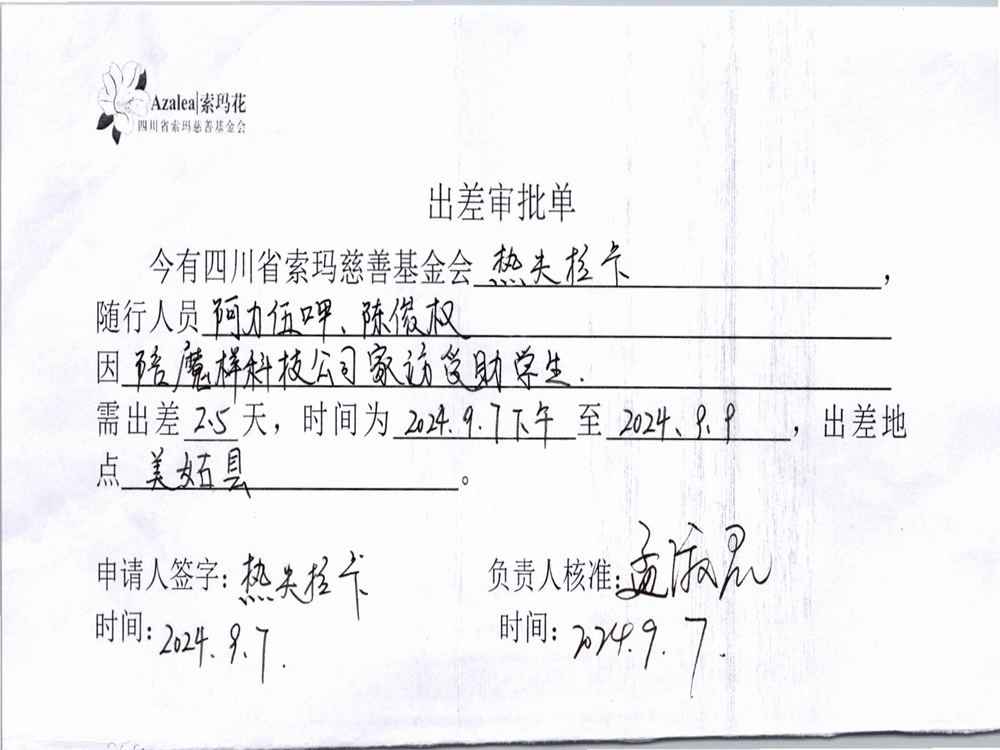 Azalea|索玛花
四川省索玛慈善基金会
出差审批单
今有四川省索玛慈善基金会 热夫拉卡 ,
随行人员 阿力伍呷、陈俊权
因 陪魔样科技公司家访受助学生.
需出差 2.5 天，时间为 2024.9.7下午 至 2024.9.9 ，出差地
点 美姑县 。
申请人签字: 热夫拉卡
负责人核准: 孟
时间: 2024.9.7.
时间: 2024.9.7.